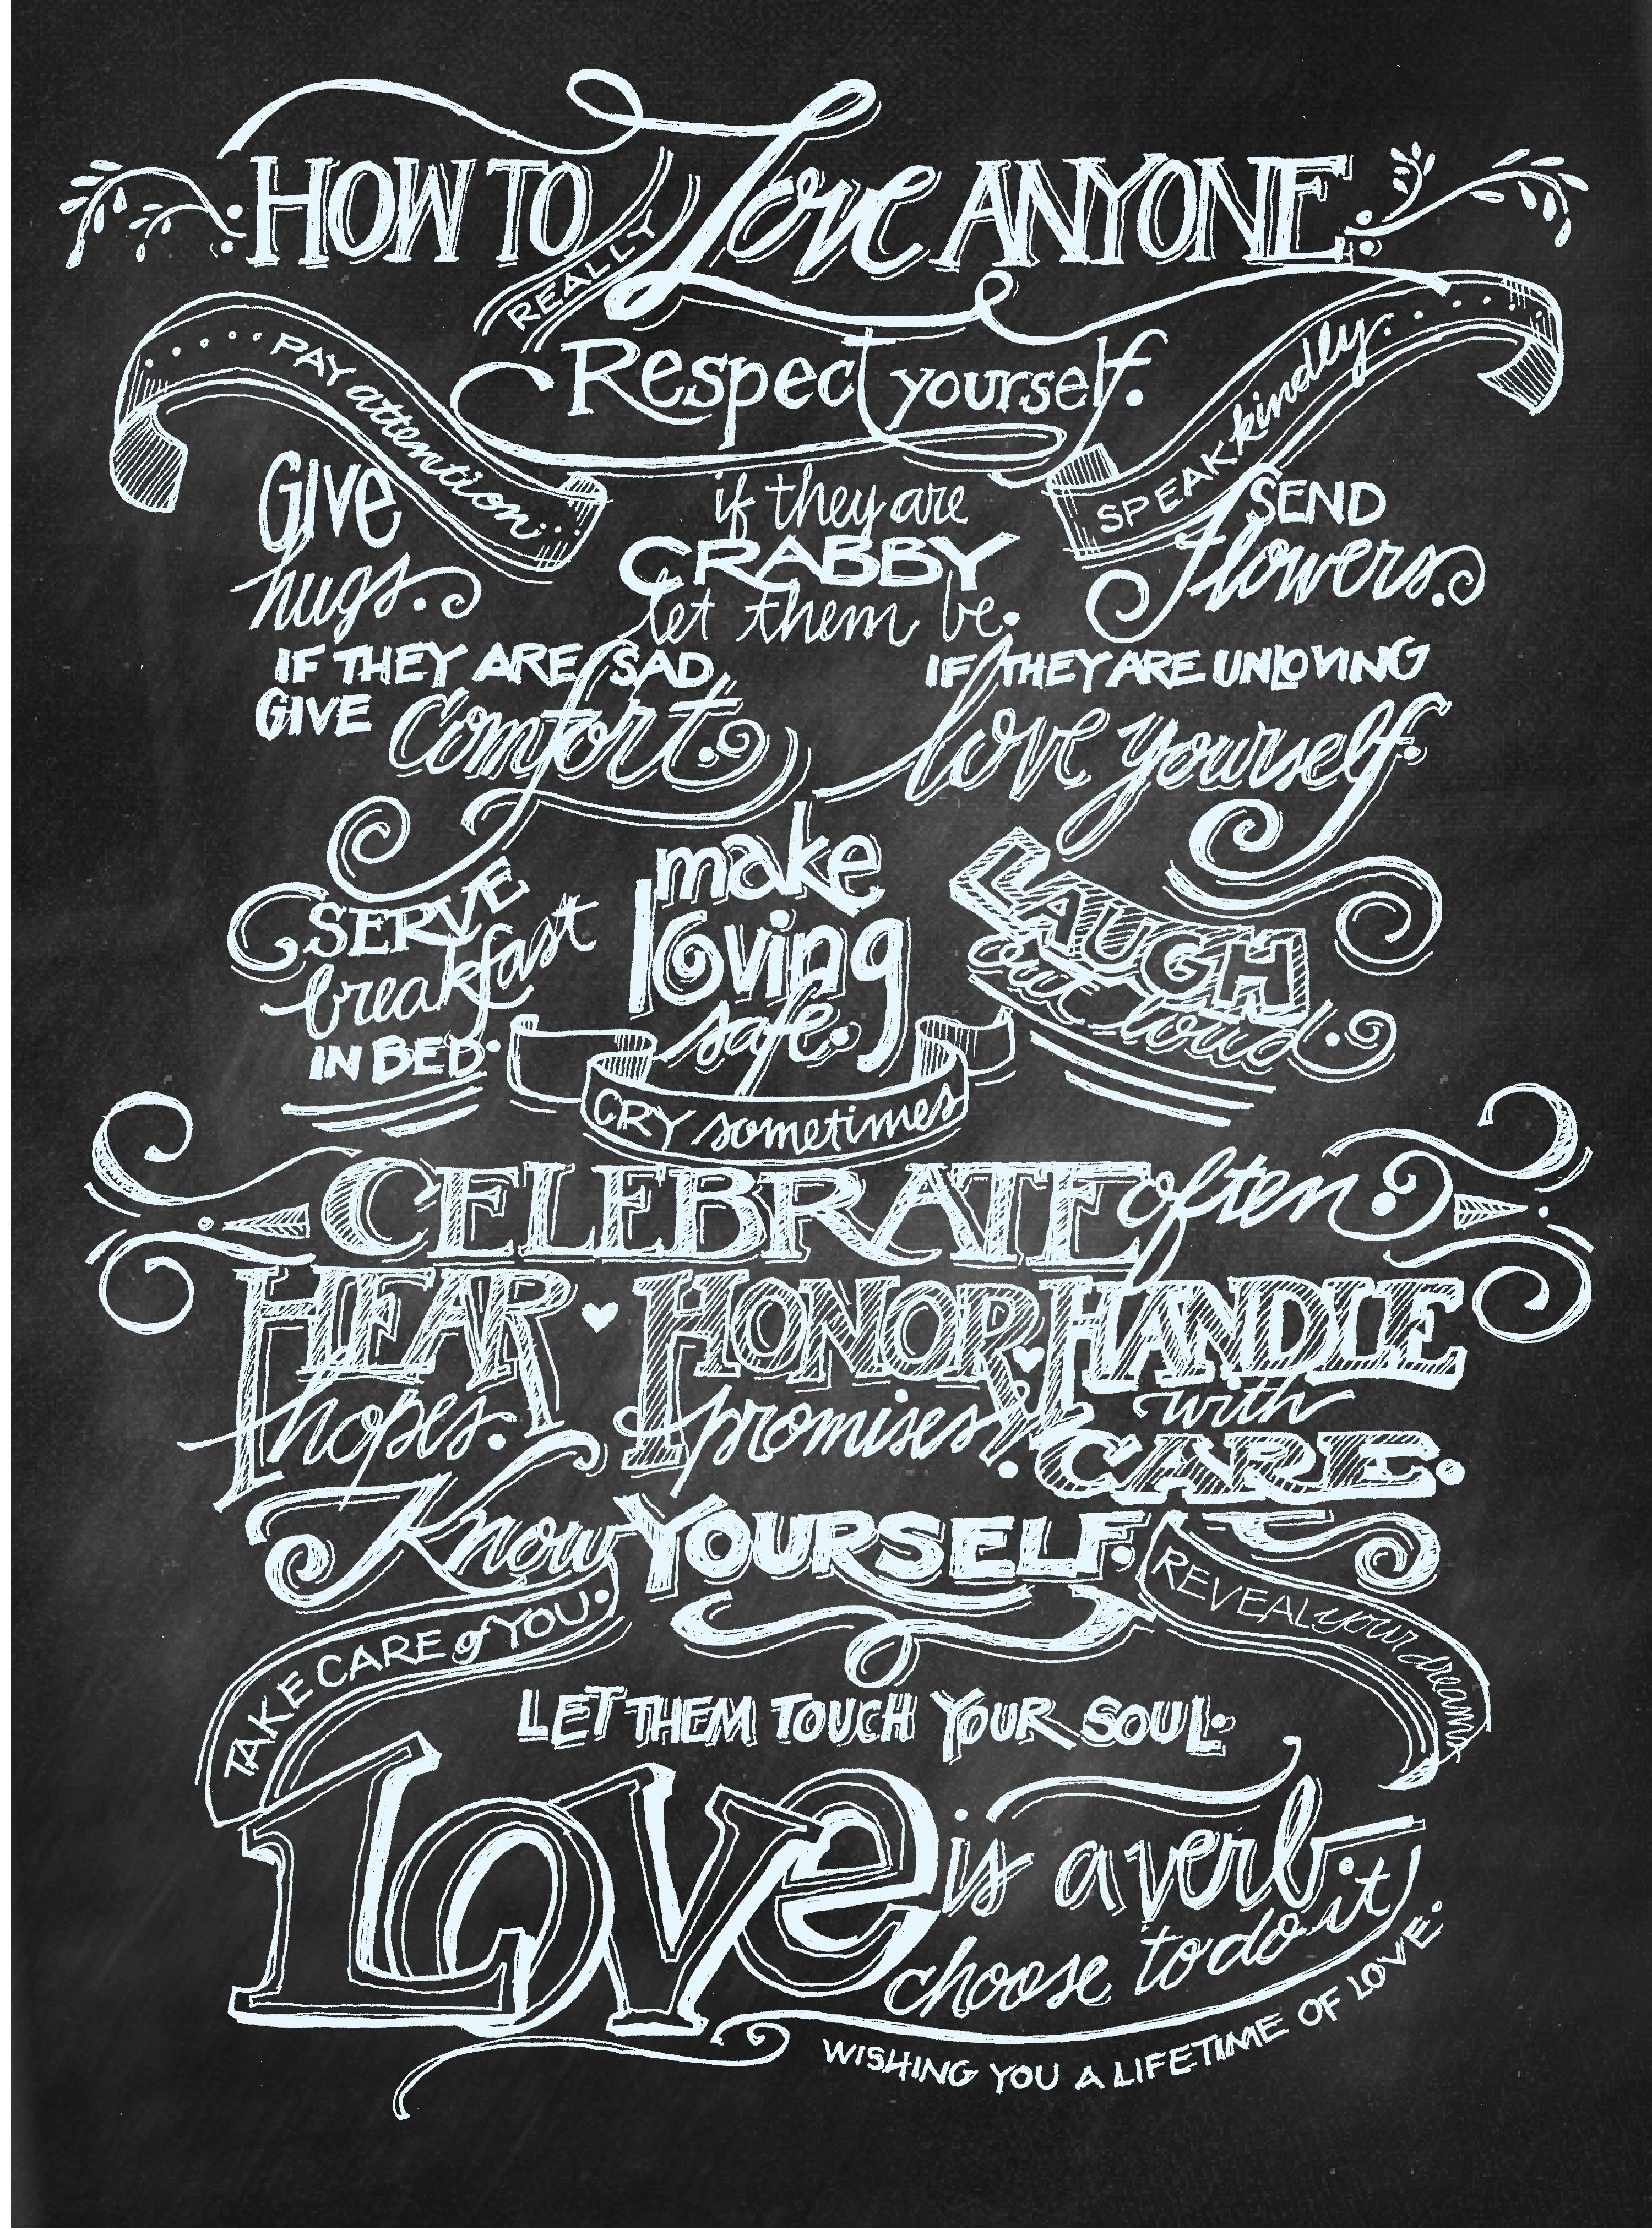 HOW TO REALLY Love ANYONE.
PAY attention.
Respect yourself.
SPEAK kindly.
GIVE
hugs.
if they are
CRABBY
let them be.
SEND
flowers.
IF THEY ARE SAD
GIVE comfort.
IF THEY ARE UNLOVING
love yourself.
SERVE
breakfast
IN BED.
make
loving
safe.
LAUGH
out loud.
CRY sometimes
CELEBRATE often.
HEAR
hopes.
HONOR
promises.
HANDLE
with
CARE.
Know YOURSELF.
TAKE CARE of YOU.
REVEAL your dreams
LET THEM TOUCH YOUR SOUL.
LOVe is a verb.
choose to do it
WISHING YOU A LIFETIME OF LOVE.